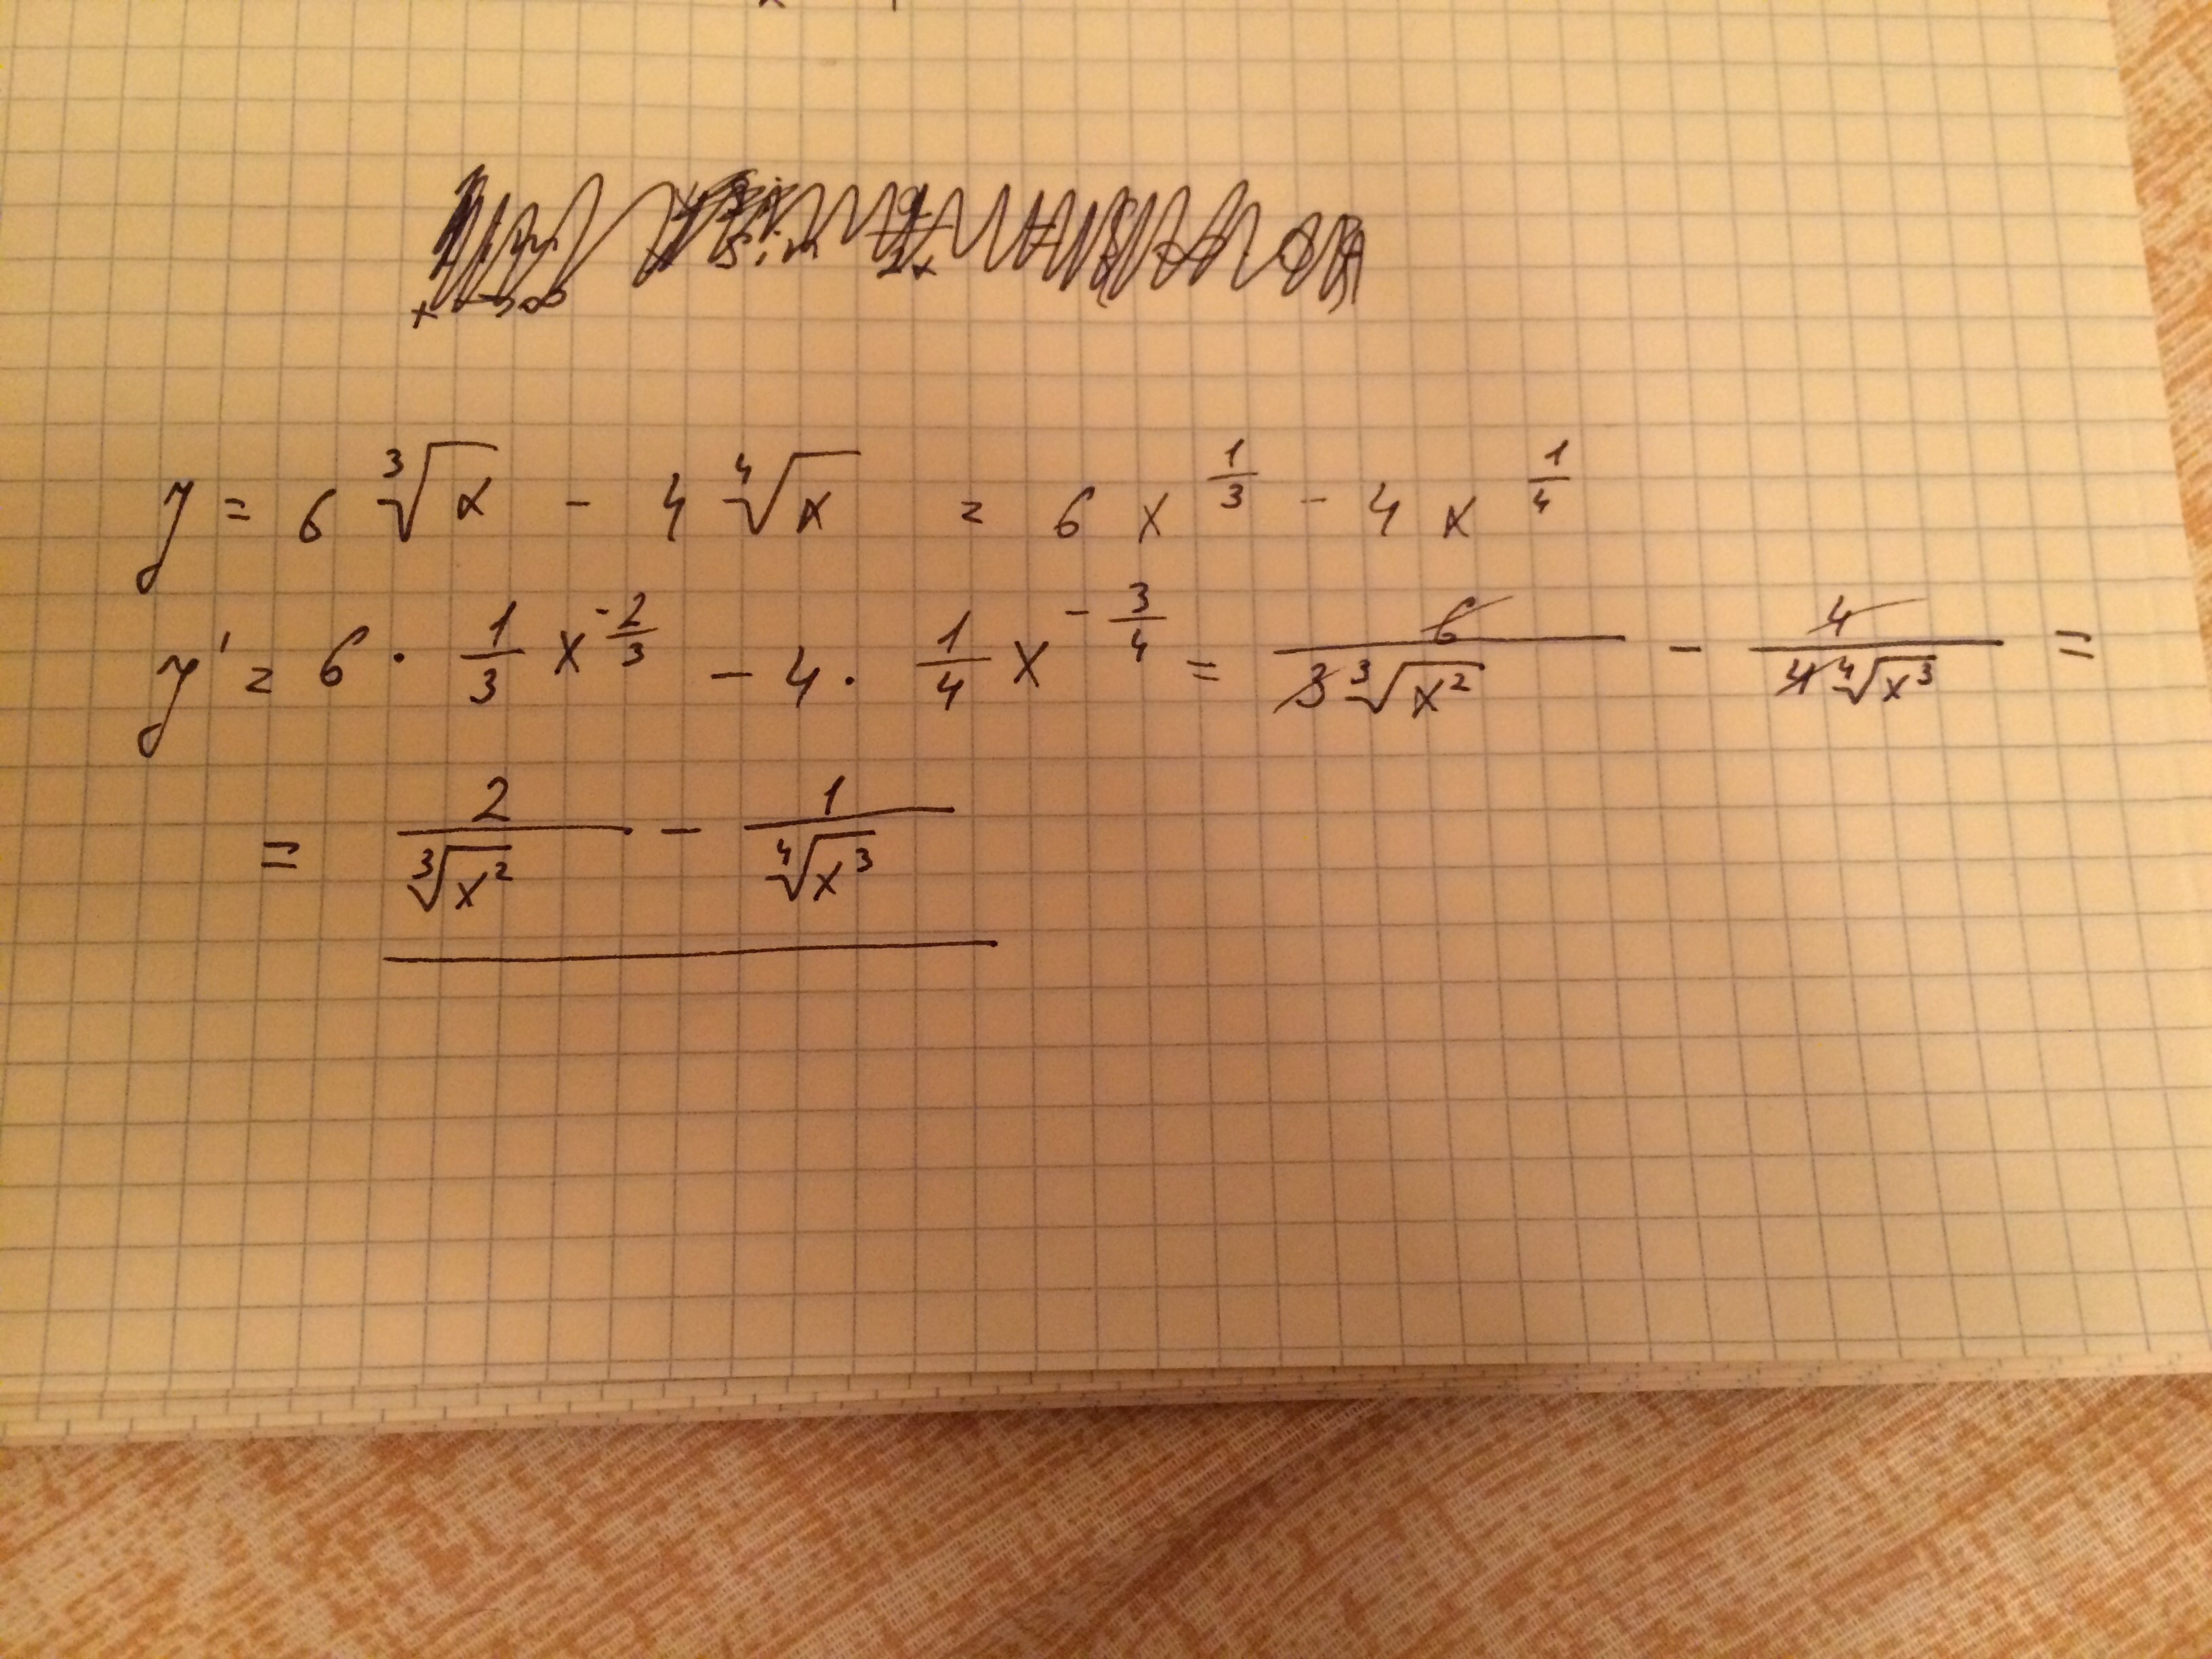 y = 6 ∛x - 4 ∜x = 6 x^{1/3} - 4 x^{1/4}
y' = 6 · 1/3 x^{-2/3} - 4 · 1/4 x^{-3/4} = 6/(3∛x²) - 4/(4∜x³) =
= 2/∛x² - 1/∜x³